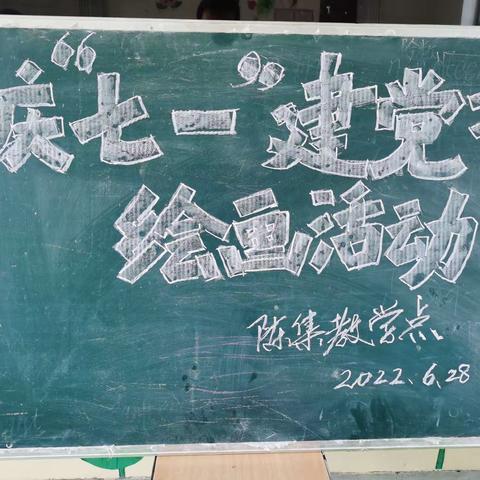 庆“七一”建党
绘画活动
陈集教学点
2022.6.28